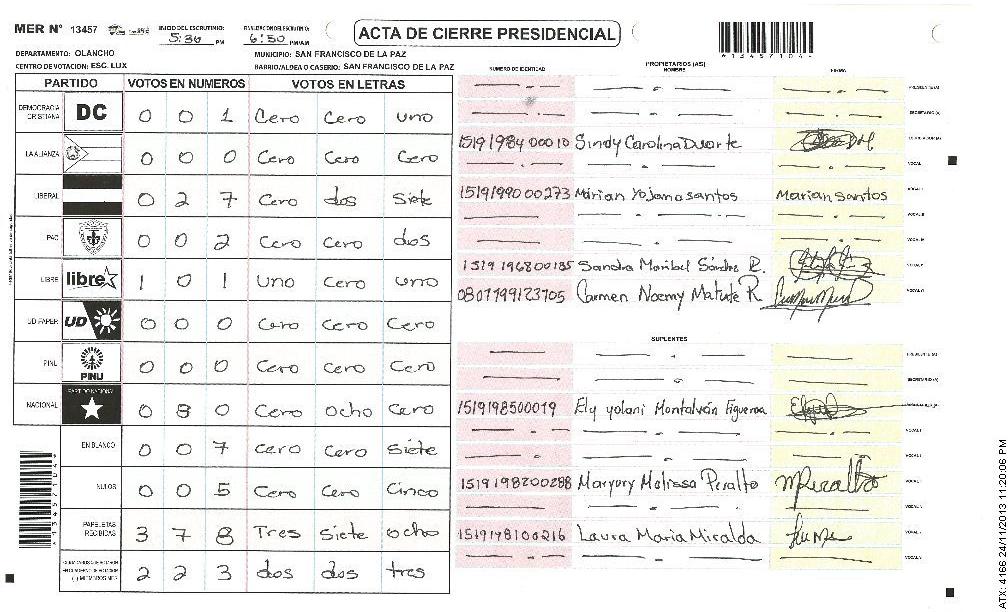 MER Nº 13457 INICIO DEL ESCRUTINIO: 5:36 PM FINALIZACION DEL ESCRUTINIO: 6:50 PM/AM ACTA DE CIERRE PRESIDENCIAL
DEPARTAMENTO: OLANCHO MUNICIPIO: SAN FRANCISCO DE LA PAZ
CENTRO DE VOTACION: ESC. LUX BARRIO/ALDEA O CASERIO: SAN FRANCISCO DE LA PAZ
PARTIDO VOTOS EN NUMEROS VOTOS EN LETRAS
DEMOCRACIA CRISTIANA DC 0 0 1 Cero Cero uno
LA ALIANZA 0 0 0 Cero Cero Cero
LIBERAL 0 2 7 Cero dos Siete
PAC 0 0 2 Cero Cero dos
LIBRE libre 1 0 1 Uno Cero Uno
UD FAPER UD 0 0 0 Cero Cero Cero
PINU PINU 0 0 0 Cero Cero Cero
NACIONAL PARTIDO NACIONAL 0 8 0 Cero Ocho Cero
EN BLANCO 0 0 7 Cero Cero Siete
NULOS 0 0 5 Cero Cero Cinco
PAPELETAS RECIBIDAS 3 7 8 Tres Siete Ocho
2 2 3 dos dos tres
NUMERO DE IDENTIDAD PROPIETARIOS (AS) NOMBRE FIRMA
PRESIDENTE (A)
SECRETARIO (A)
1519198400010 Sindy Carolina Duarte
VOCAL
1519199000273 Mirian Yojana Santos Marian Santos
1519196800185 Sandra Maribel Sánchez R.
0801199123705 Carmen Noemy Matute R
SUPLENTES
PRESIDENTE (A)
SECRETARIO (A)
1519198500019 Ely yolani Montalván Figueroa
1519198200288 Maryory Melissa Peralta MPeralta
1519198100216 Laura Maria Miralda
ATX: 4166 24/11/2013 11:20:06 PM